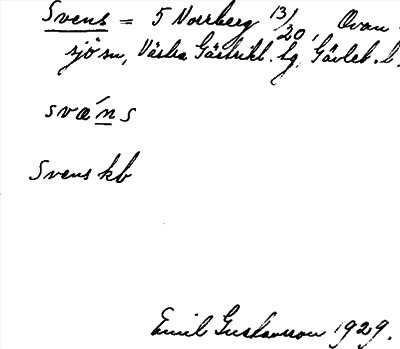 Svens = 5 Norrberg 13/20, Ovan-
sjö sn, Västra Gästrikl. tg, Gävleb. l.
svæ´ns
Svens kb
Emil Gustavsson 1929.